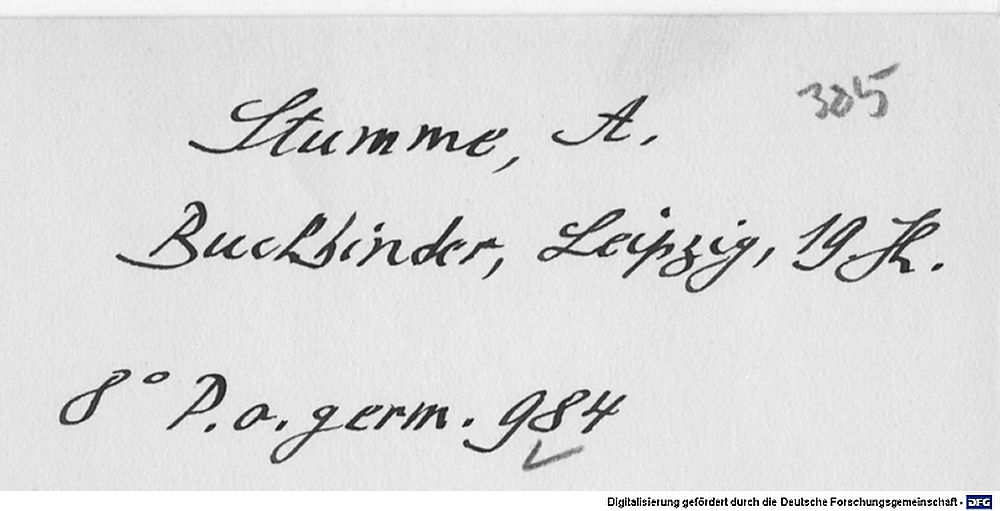 305
Stumme, A.
Buchbinder, Leipzig, 19 Jh.
8° P.o.germ. 984
Digitalisierung gefördert durch die Deutsche Forschungsgemeinschaft - DFG